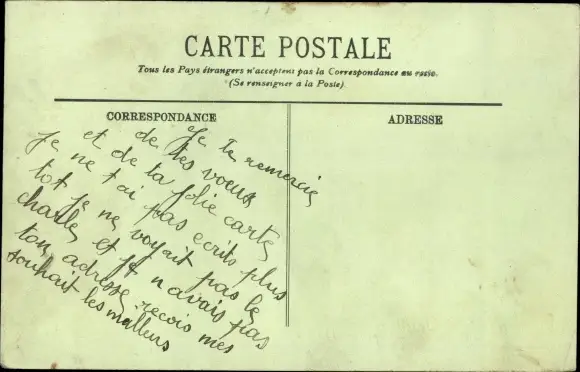 CARTE POSTALE
Tous les Pays étrangers n'acceptent pas la Correspondance au recto.
(Se renseigner à la Poste)
CORRESPONDANCE
ADRESSE
Je te remercie
de tes voeux
et de ta jolie carte
je ne t ai pas ecrits plus
tot je ne voyait pas le
charles et je n avais pas
ton adresse recois mes
souhait les meilleurs